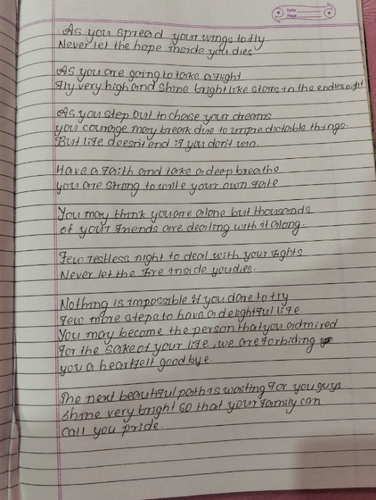 Date
Page
As you spread your wings to fly
Never let the hope inside you dies
As you are going to take a flight
Fly very high and shine bright like stars in the endless night
As you step out to chase your dreams
you courage may break due to unpredictable things.
But life doesn't end if you don't win.
Have a faith and take a deep breathe
you are strong to write your own fate
You may think you are alone but thousands
of your friends are dealing with it along.
Few restless night to deal with your fights
Never let the fire inside you dies.
Nothing is impossible if you dare to try
Few more steps to have a delightful life
You may become the person that you admired
For the sake of your life, we are forbiding
you a heartfelt good bye.
The next beautiful path is waiting for you guys
shine very bright so that your family can
call you pride.